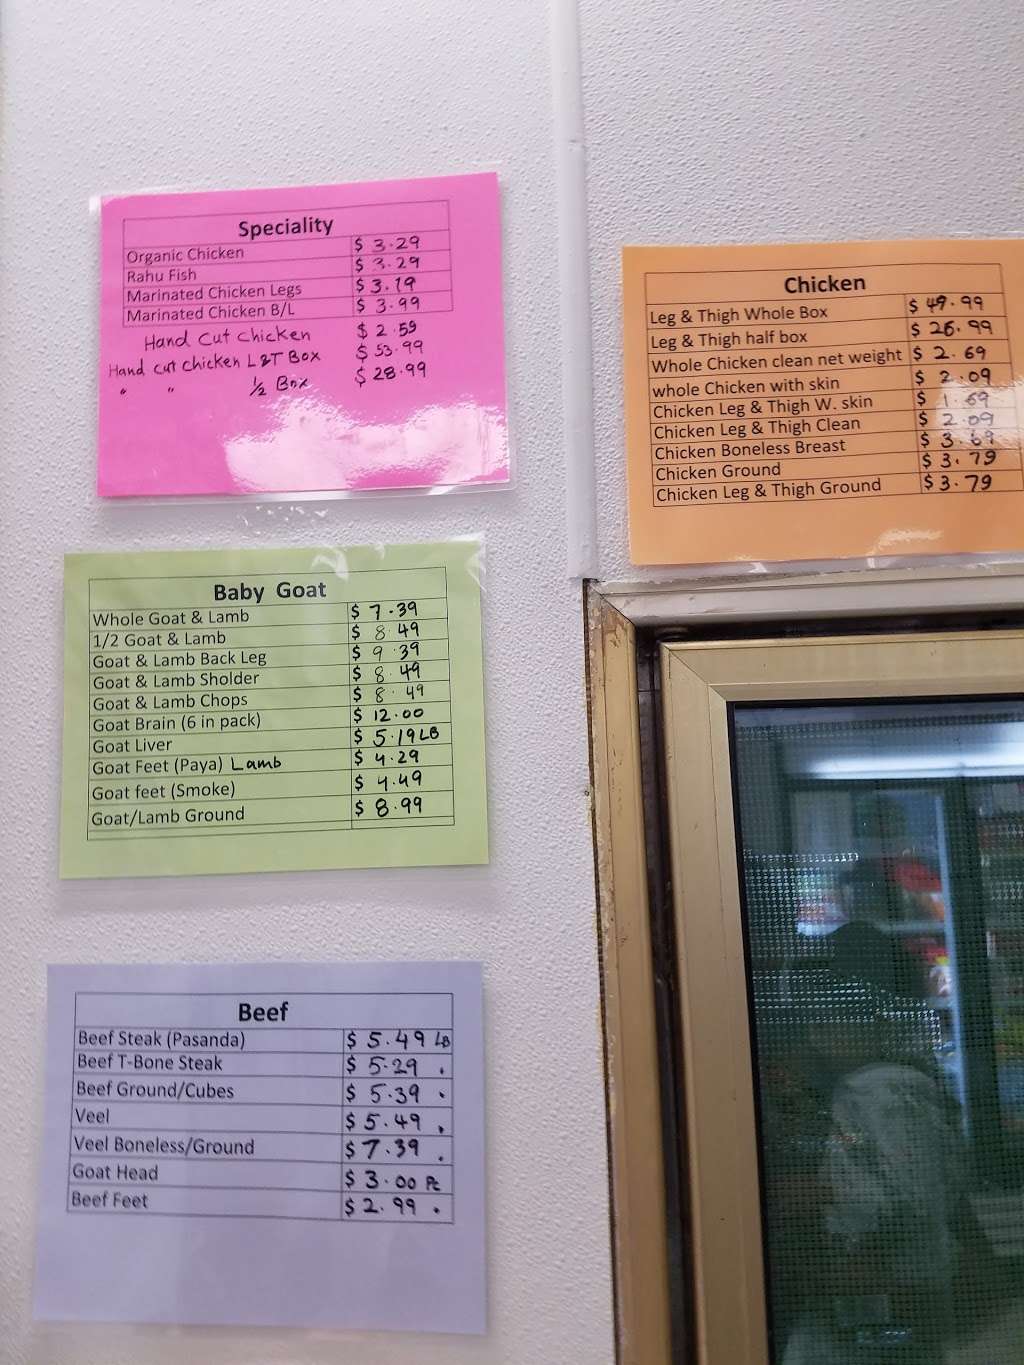 Speciality
Organic Chicken $ 3.29
Rahu Fish $ 3.29
Marinated Chicken Legs $ 3.19
Marinated Chicken B/L $ 3.99
Hand Cut chicken $ 2.59
Hand cut chicken L&T Box $ 53.99
" " 1/2 Box $ 28.99
Chicken
Leg & Thigh Whole Box $ 49.99
Leg & Thigh half box $ 26.99
Whole Chicken clean net weight $ 2.69
whole Chicken with skin $ 2.09
Chicken Leg & Thigh W. skin $ 1.69
Chicken Leg & Thigh Clean $ 2.09
Chicken Boneless Breast $ 3.69
Chicken Ground $ 3.79
Chicken Leg & Thigh Ground $ 3.79
Baby Goat
Whole Goat & Lamb $ 7.39
1/2 Goat & Lamb $ 8.49
Goat & Lamb Back Leg $ 9.39
Goat & Lamb Sholder $ 8.49
Goat & Lamb Chops $ 8.49
Goat Brain (6 in pack) $ 12.00
Goat Liver $ 5.19 LB
Goat Feet (Paya) Lamb $ 4.29
Goat feet (Smoke) $ 4.49
Goat/Lamb Ground $ 8.99
Beef
Beef Steak (Pasanda) $ 5.49 LB
Beef T-Bone Steak $ 5.29 .
Beef Ground/Cubes $ 5.39 .
Veel $ 5.49 .
Veel Boneless/Ground $ 7.39 .
Goat Head $ 3.00 Pc
Beef Feet $ 2.99 .